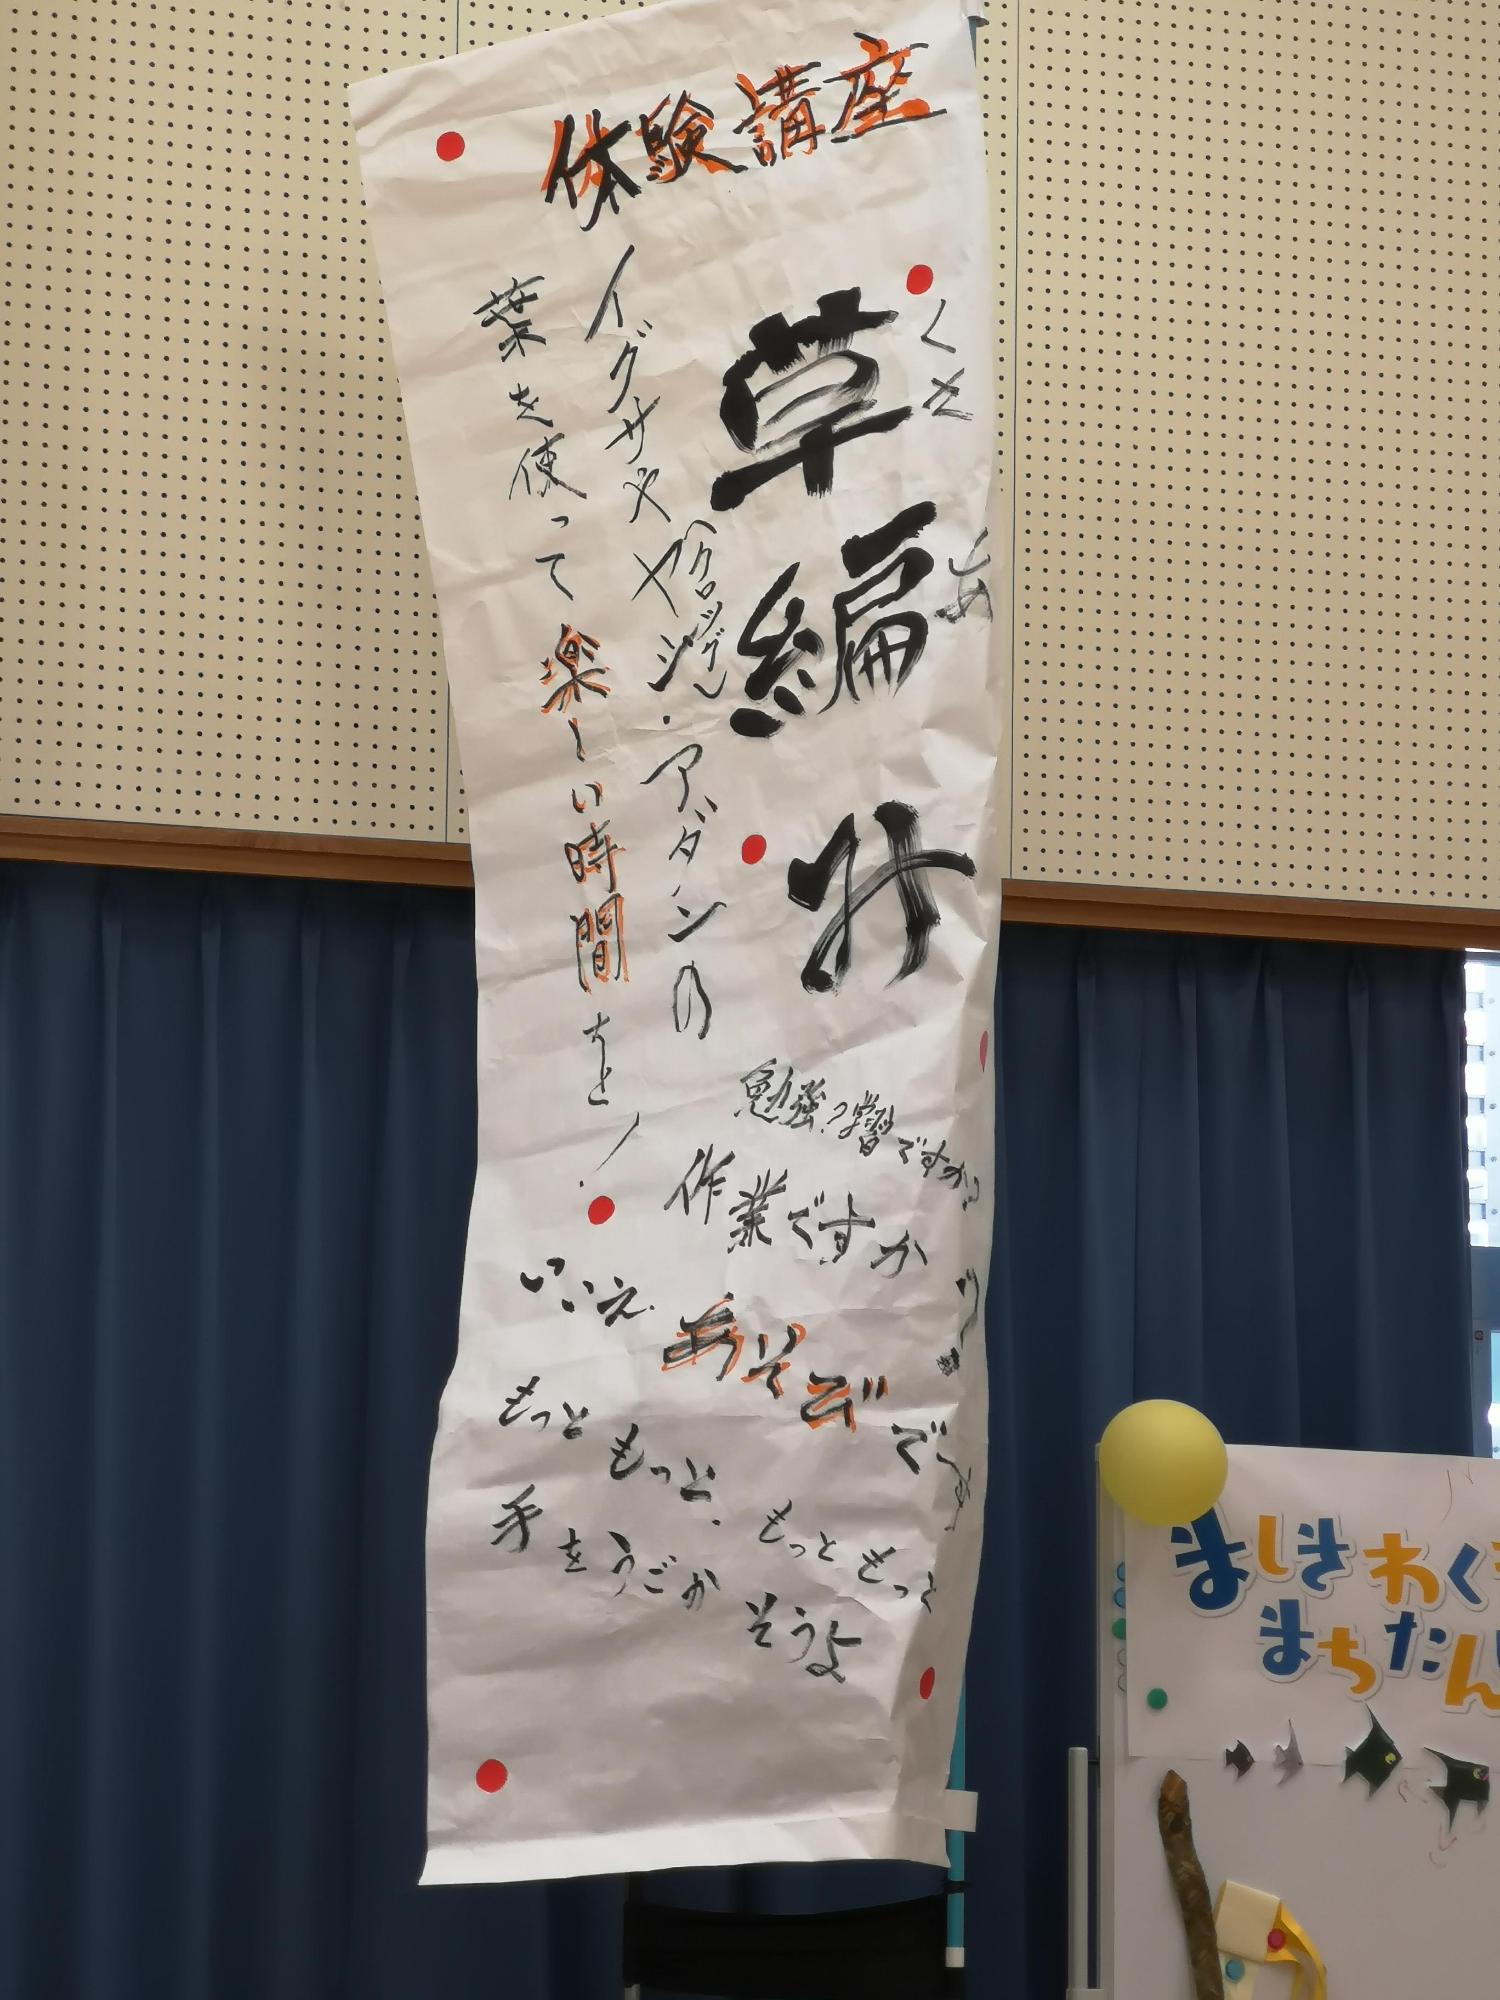 体験講座
くさ
あ
草編み
イグサやヤシ・アダンの
葉を使って楽しい時間をと!
勉強?学習ですか?
作業ですか
いいえ.
あそびです
もっともっと.もっともっと
手をうごかそうよ
ましきわく
まちたん